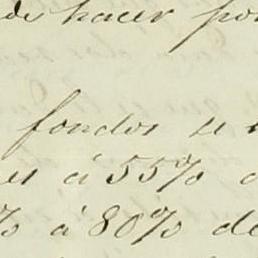 de hacer por
fondos se
es á 55%
% á 80% de